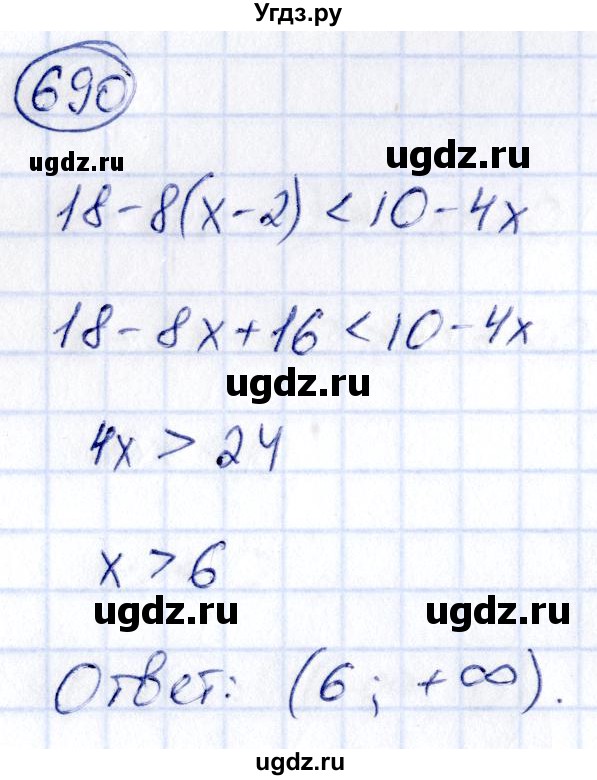 Угдз.ру
690
ugdz.ru
ugdz.ru
18-8(x-2)<10-4x
18-8x+16<10-4x
ugdz.ru
4x>24
x>6
ugdz.ru
ugdz.ru
Ответ: (6; +∞).